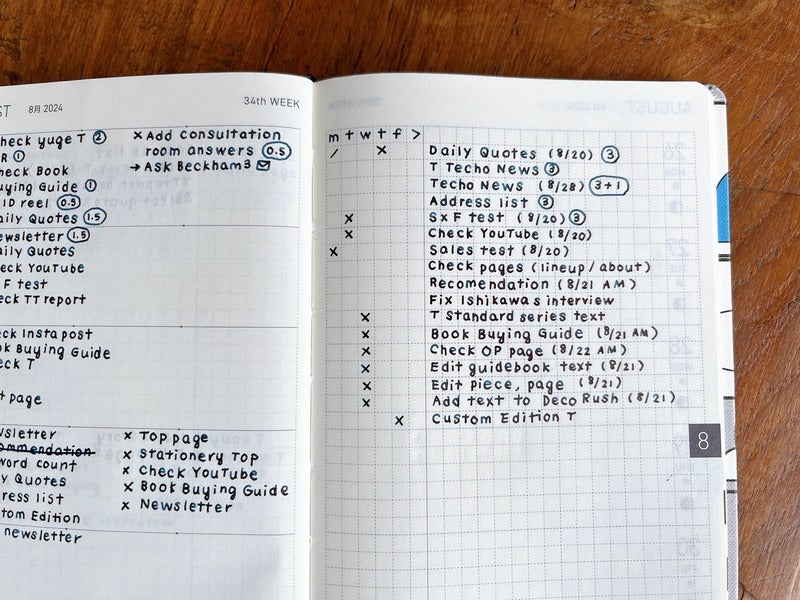 ST 8月 2024 34th WEEK
heck yuge T ②
R ①
heck Book
uying Guide ①
ID reel 0.5
aily Quotes 1.5
ewsletter 1.5
aily Quotes
eck YouTube
F test
eck TT report
eck Insta post
ok Buying Guide
eck T
t page
wsletter
ommendation
word count
y Quotes
ress list
tom Edition
newsletter
× Add consultation
room answers 0.5
→ Ask Beckham3 ✉
× Top page
× Stationery Top
× Check YouTube
× Book Buying Guide
× Newsletter
m t w t f >
/ × Daily Quotes (8/20) ③
T Techo News ③
Techo News (8/28) 3+1
Address list ③
× S×F test (8/20) ③
× Check YouTube (8/20)
× Sales test (8/20)
Check pages (lineup/about)
Recomendation (8/21 AM)
Fix Ishikawas interview
× T Standard series text
× Book Buying Guide (8/21 AM)
× Check OP page (8/22 AM)
× Edit guidebook text (8/21)
× Edit piece, page (8/21)
× Add text to Deco Rush (8/21)
× Custom Edition T
8